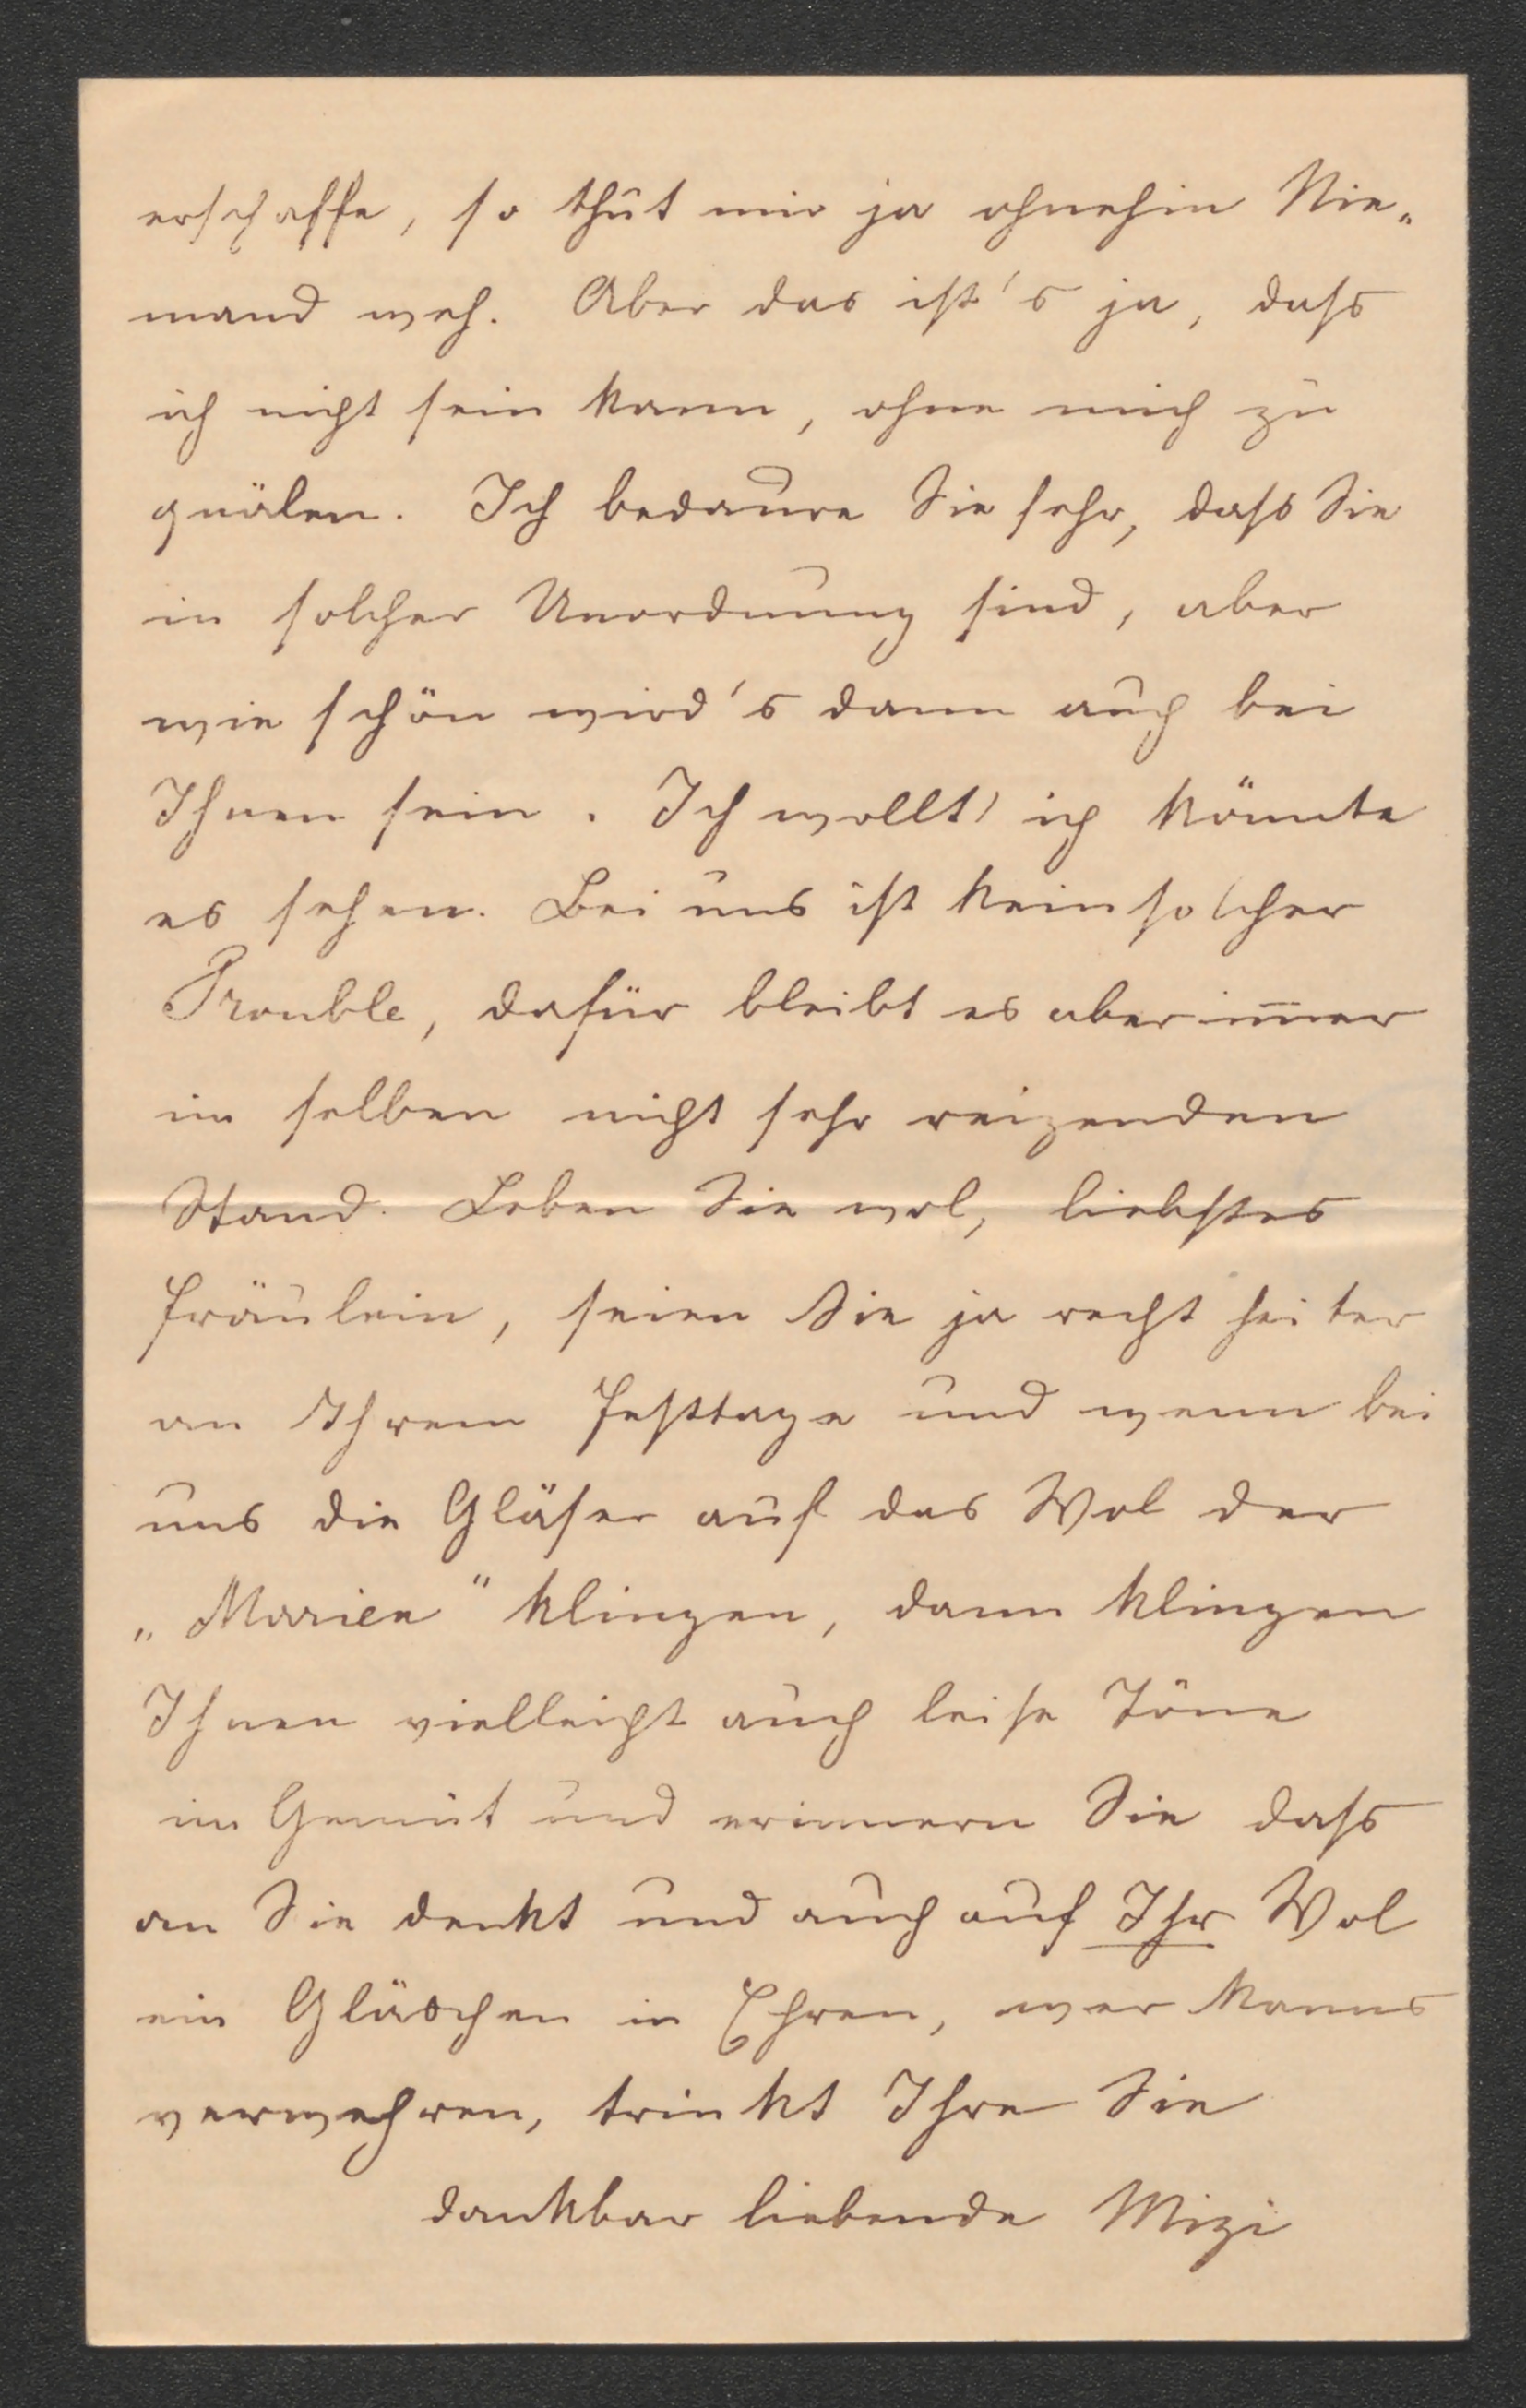 erschaffe, so thut mir ja ohnehin Nie-
mand weh. Aber das ist's ja, dass
ich nicht sein kann, ohne mich zu
quälen. Ich bedaure Sie sehr, dass Sie
in solcher Unordnung sind, aber
wie schön wird's dann auch bei
Ihnen sein. Ich wollt' ich könnte
es sehen. Bei uns ist kein solcher
Trouble, dafür bleibt es aber im̅er
im selben nicht sehr reizenden
Stand. Leben Sie wol, liebstes
Fräulein, seien Sie ja recht heiter
an Ihrem Festtage und wenn bei
uns die Gläser auf das Wol der
„Marien" klingen, dann klingen
Ihnen vielleicht auch leise Töne
im Gemüt und erinnern Sie dass
an Sie denkt und auch auf Ihr Wol
ein Gläschen in Ehren, wer kanns
verwehren, trinkt Ihre Sie
dankbar liebende Mizi